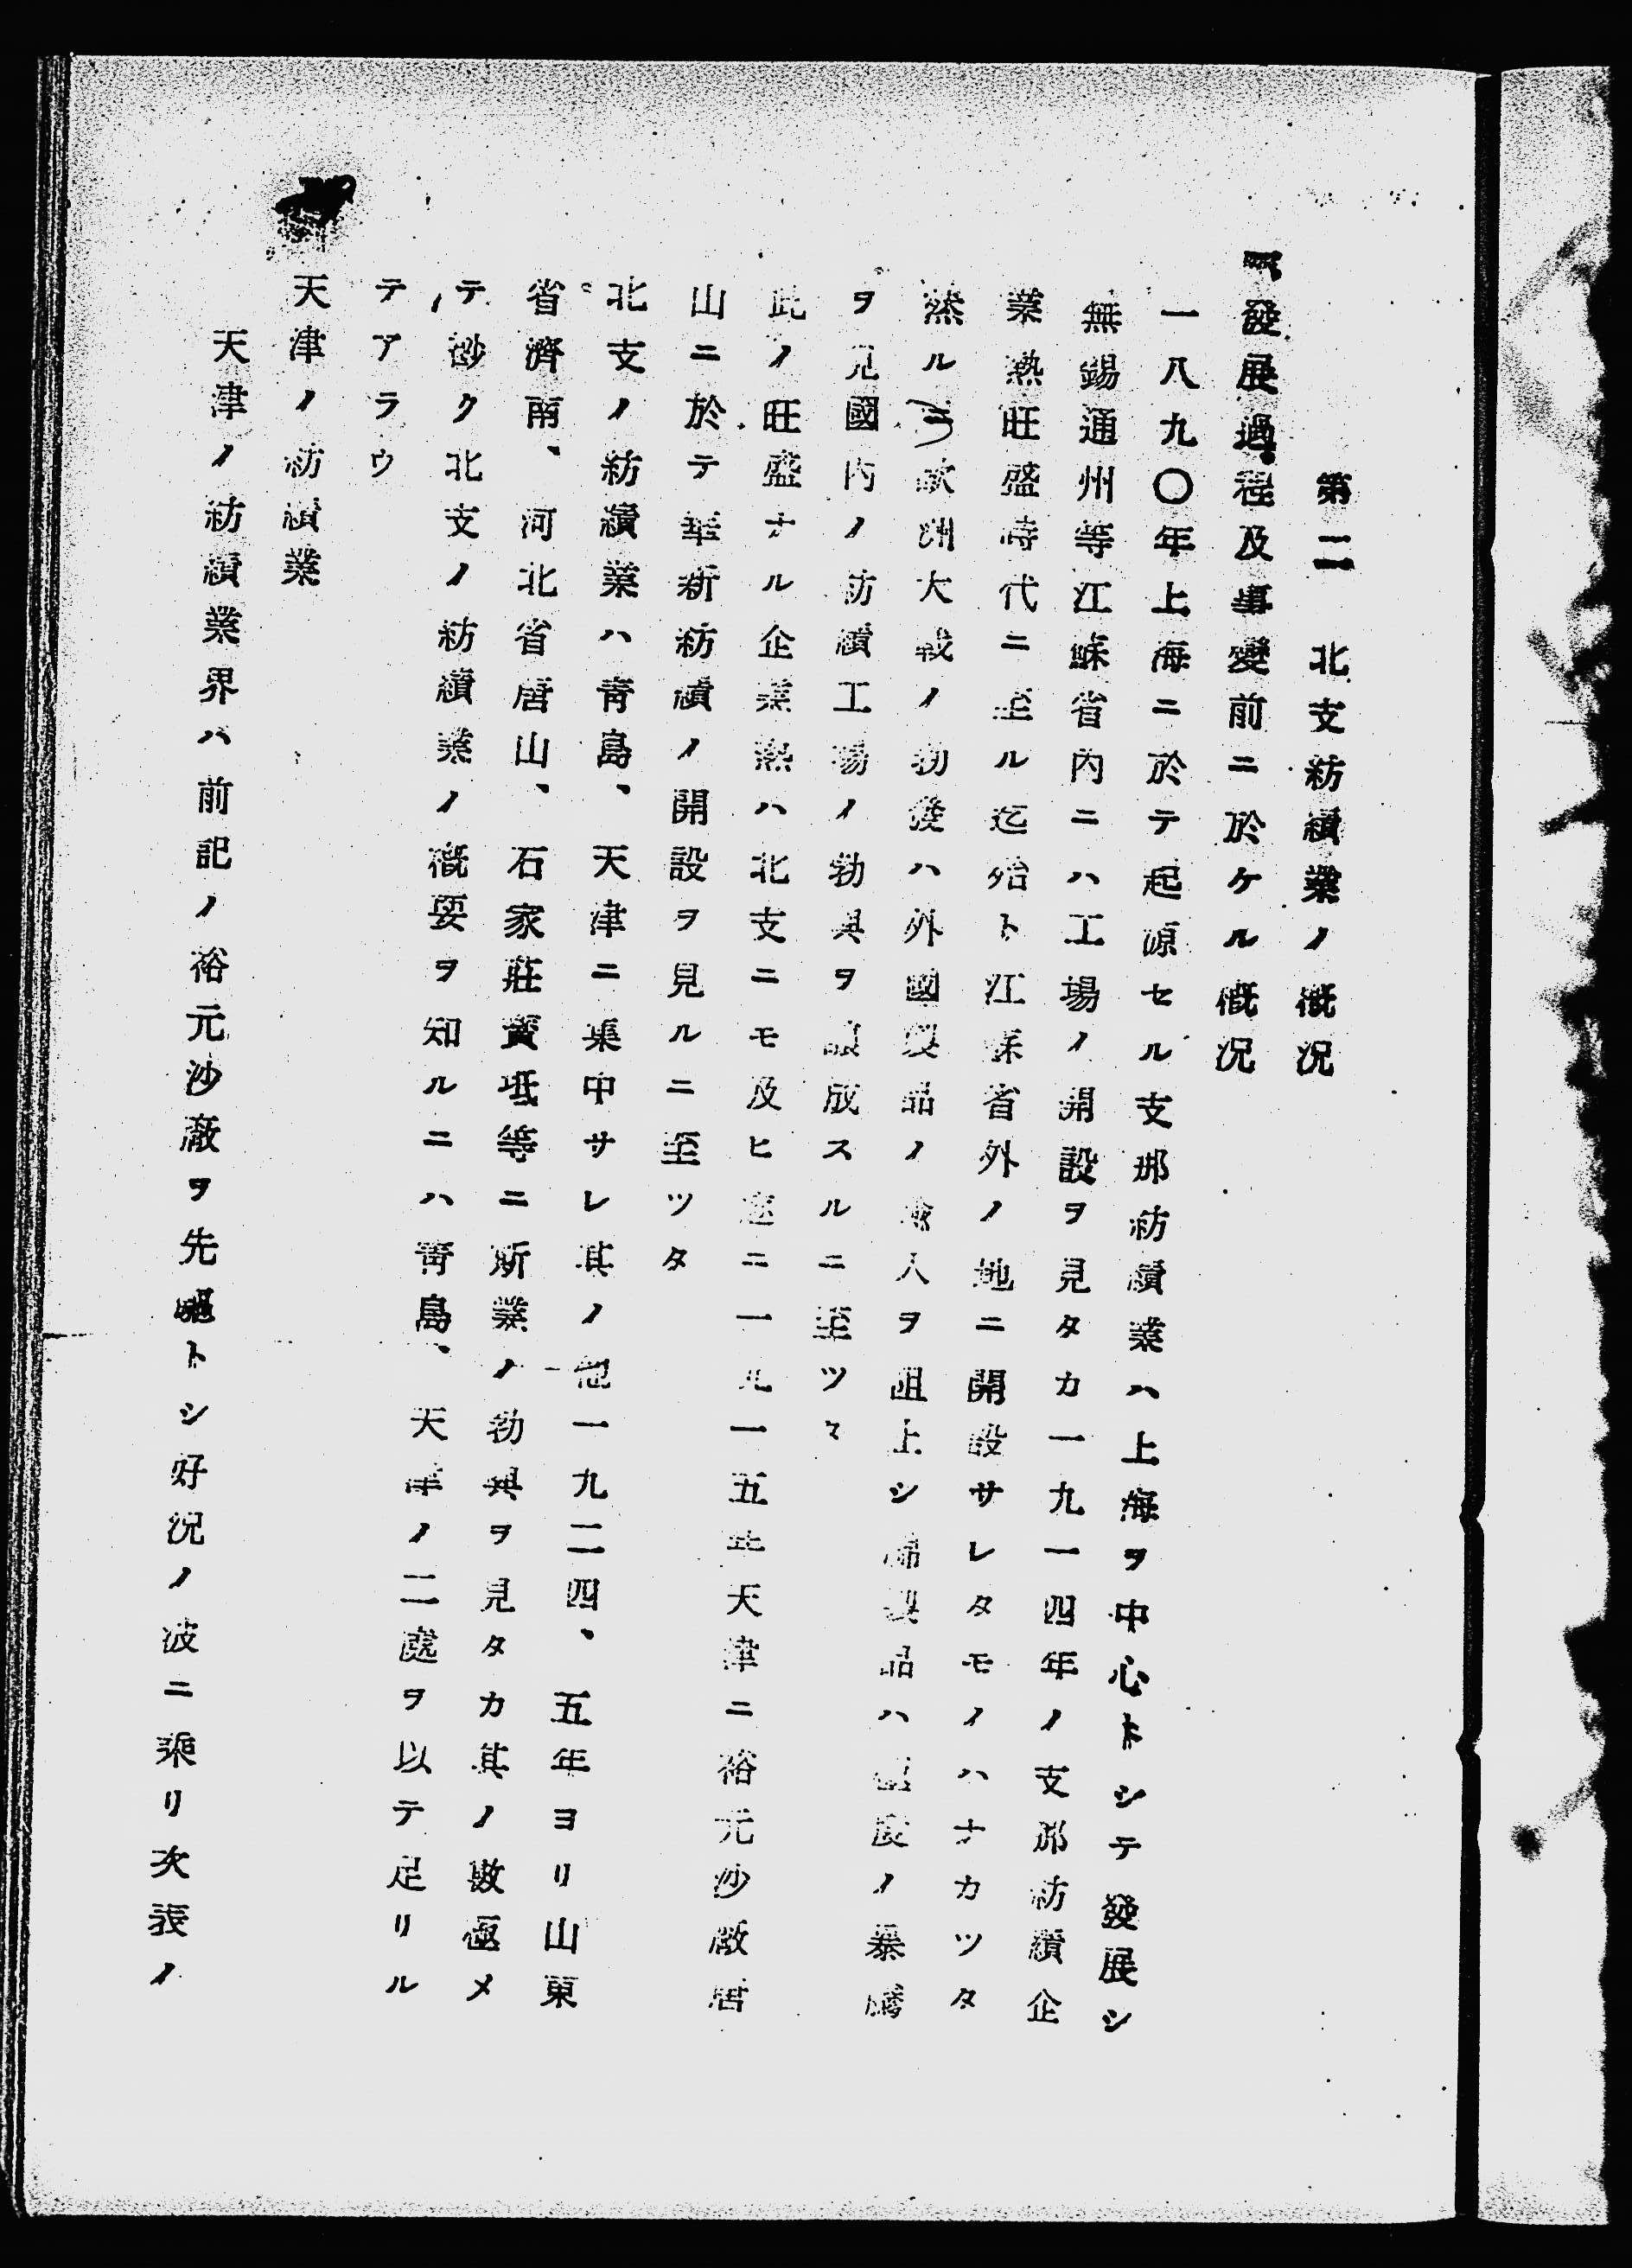 第二　北支紡績業ノ概況
發展過程及事變前ニ於ケル概況
一八九〇年上海ニ於テ起源セル支那紡績業ハ上海ヲ中心トシテ發展シ
無錫通州等江蘇省内ニハ工場ノ開設ヲ見タカ一九一四年ノ支那紡績企
業熱旺盛時代ニ至ル迄殆ト江蘇省外ノ地ニ開設サレタモノハナカツタ
然ル欧洲大戦ノ勃發ハ外國製品ノ輸入ヲ阻止シ綿製品ハ極度ノ暴騰
ヲ見國内ノ紡績工場ノ勃興ヲ醸成スルニ至ツタ
此ノ旺盛ナル企業熱ハ北支ニモ及ヒ遂ニ一九一五年天津ニ裕元沙廠唐
山ニ於テ華新紡績ノ開設ヲ見ルニ至ツタ
北支ノ紡績業ハ青島、天津ニ集中サレ其ノ他一九二四、五年ヨリ山東
省濟南、河北省唐山、石家莊寶坻等ニ斯業ノ勃興ヲ見タカ其ノ數極メ
テ尠ク北支ノ紡績業ノ概要ヲ知ルニハ青島、天津ノ二處ヲ以テ足リル
テアラウ
天津ノ紡績業
天津ノ紡績業界ハ前記ノ裕元沙廠ヲ先驅トシ好況ノ波ニ乘リ次表ノ